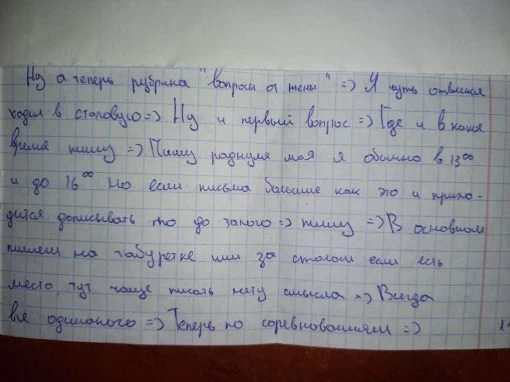 Ну а теперь рубрика "вопросы от жены" => Я чуть отвлекся
ходил в столовую => Ну и первый вопрос => Где и в какое
время пишу => Пишу роднуля моя я обычно в 13⁰⁰
и до 16⁰⁰ Но если письма большие как это и прихо-
дится дописывать то до такого => пишу => В основном
пишем на табуретке или за столом если есть
место, тут чаще писать нету смысла => Всегда
всё одинаково => Теперь по соревнованиям =>